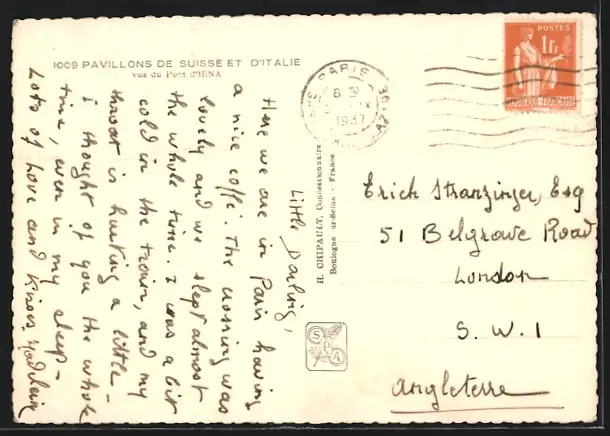 1009 PAVILLONS DE SUISSE ET D'ITALIE
vus du Pont d'IÉNA
Little Darling,
Here we are in Paris having
a nice coffe. The crossing was
lovely and we slept almost
the whole time. I was a bit
cold in the train, and my
throat is hurting a little -
I thought of you the whole
time, even in my sleep -
Lots of love and kisses
H. CHIPAULT, Concessionnaire
Boulogne sur-Seine - France
SPA
PARIS
1937
POSTES
1 Fr
RÉPUBLIQUE FRANÇAISE
Erich Stranzinger, Esq
51 Belgrave Road
London
S.W.1
Angleterre